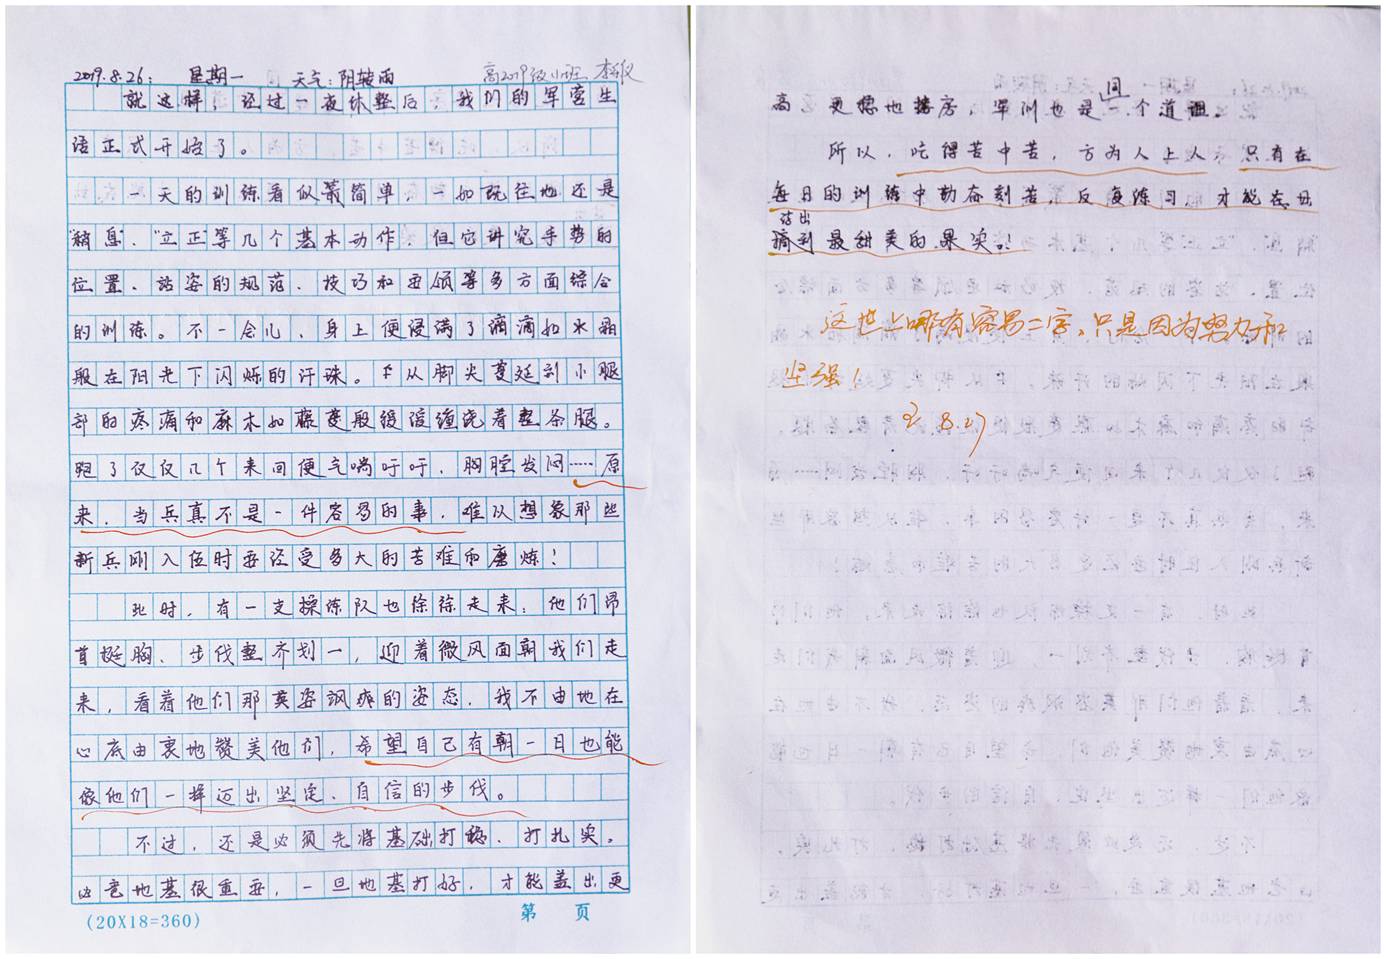 2019.8.26： 星期一 天气：阴转雨 高2019级11班
就这样，经过一夜休整后，我们的军营生
活正式开始了。
一天的训练看似最简单——如既往地还是
"稍息"、"立正"等几个基本动作，但它讲究手势的
位置、站姿的规范、技巧和要领等多方面综合
的训练。不一会儿，身上便浸满了滴滴如水晶
般在阳光下闪烁的汗珠。从脚尖蔓延到小腿
部的疼痛和麻木如藤蔓般缓缓缠绕着整条腿。
跑了仅仅几个来回便气喘吁吁，胸腔发闷……原
来，当兵真不是一件容易的事，难以想象那些
新兵刚入伍时要经受多大的苦难和磨炼！
此时，有一支操练队也徐徐走来，他们昂
首挺胸、步伐整齐划一，迎着微风面朝我们走
来，看着他们那英姿飒爽的姿态，我不由地在
心底由衷地赞美他们，希望自己有朝一日也能
像他们一样迈出坚定、自信的步伐。
不过，还是必须先将基础打稳、打扎实。
毕竟地基很重要，一旦地基打好，才能盖出更
(20X18=360) 第 页
高、更稳地楼房，军训也是同一个道理。
所以，吃得苦中苦，方为人上人，只有在
每日的训练中勤奋刻苦，反复练习，才能在
结出
摘到最甜美的果实。！
这世上哪有容易二字，只是因为努力和
坚强！
8.27